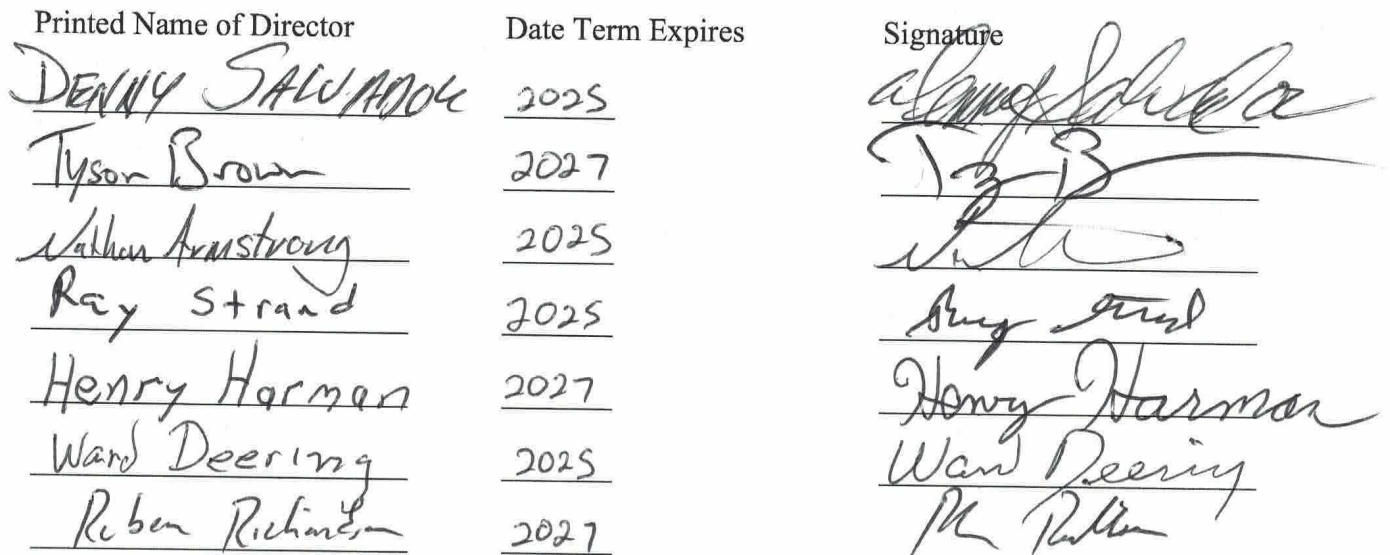 Printed Name of Director Date Term Expires Signature
DENNY SALVADOR 2025 Denny Salvador
Tyson Brown 2027
Nathan Armstrong 2025
Ray Strand 2025 Ray Strand
Henry Harman 2027 Henry Harman
Ward Deering 2025 Ward Deering
Ruben Richardson 2027